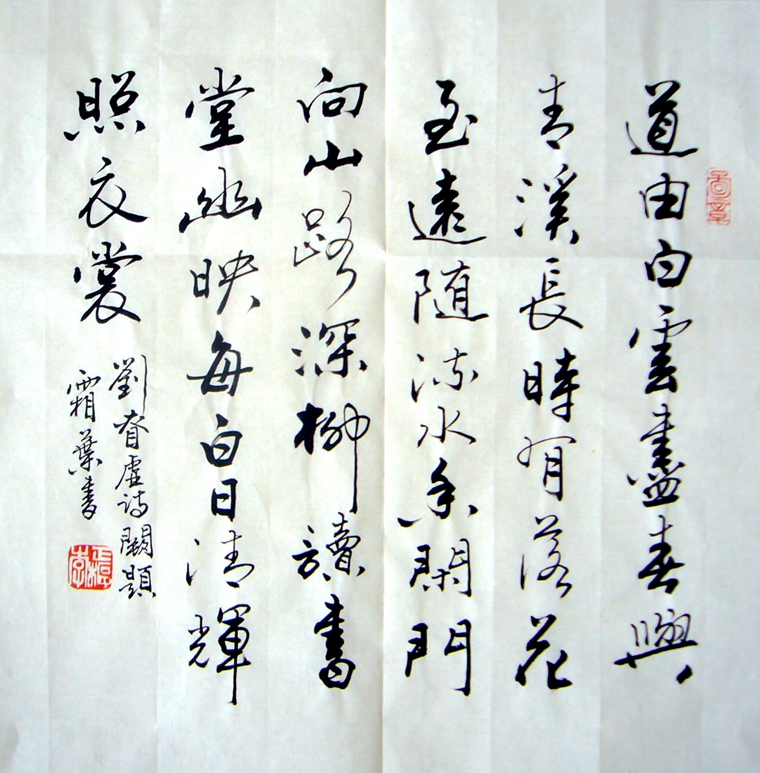 道由白雲盡春與
青溪長時有落花
至遠随流水香閑門
向山路深柳讀書
堂幽映每白日清輝
照衣裳
劉眘虛詩闕題
霜葉書